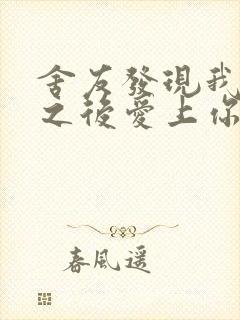 舍友發現我
之後愛上你
春風遥